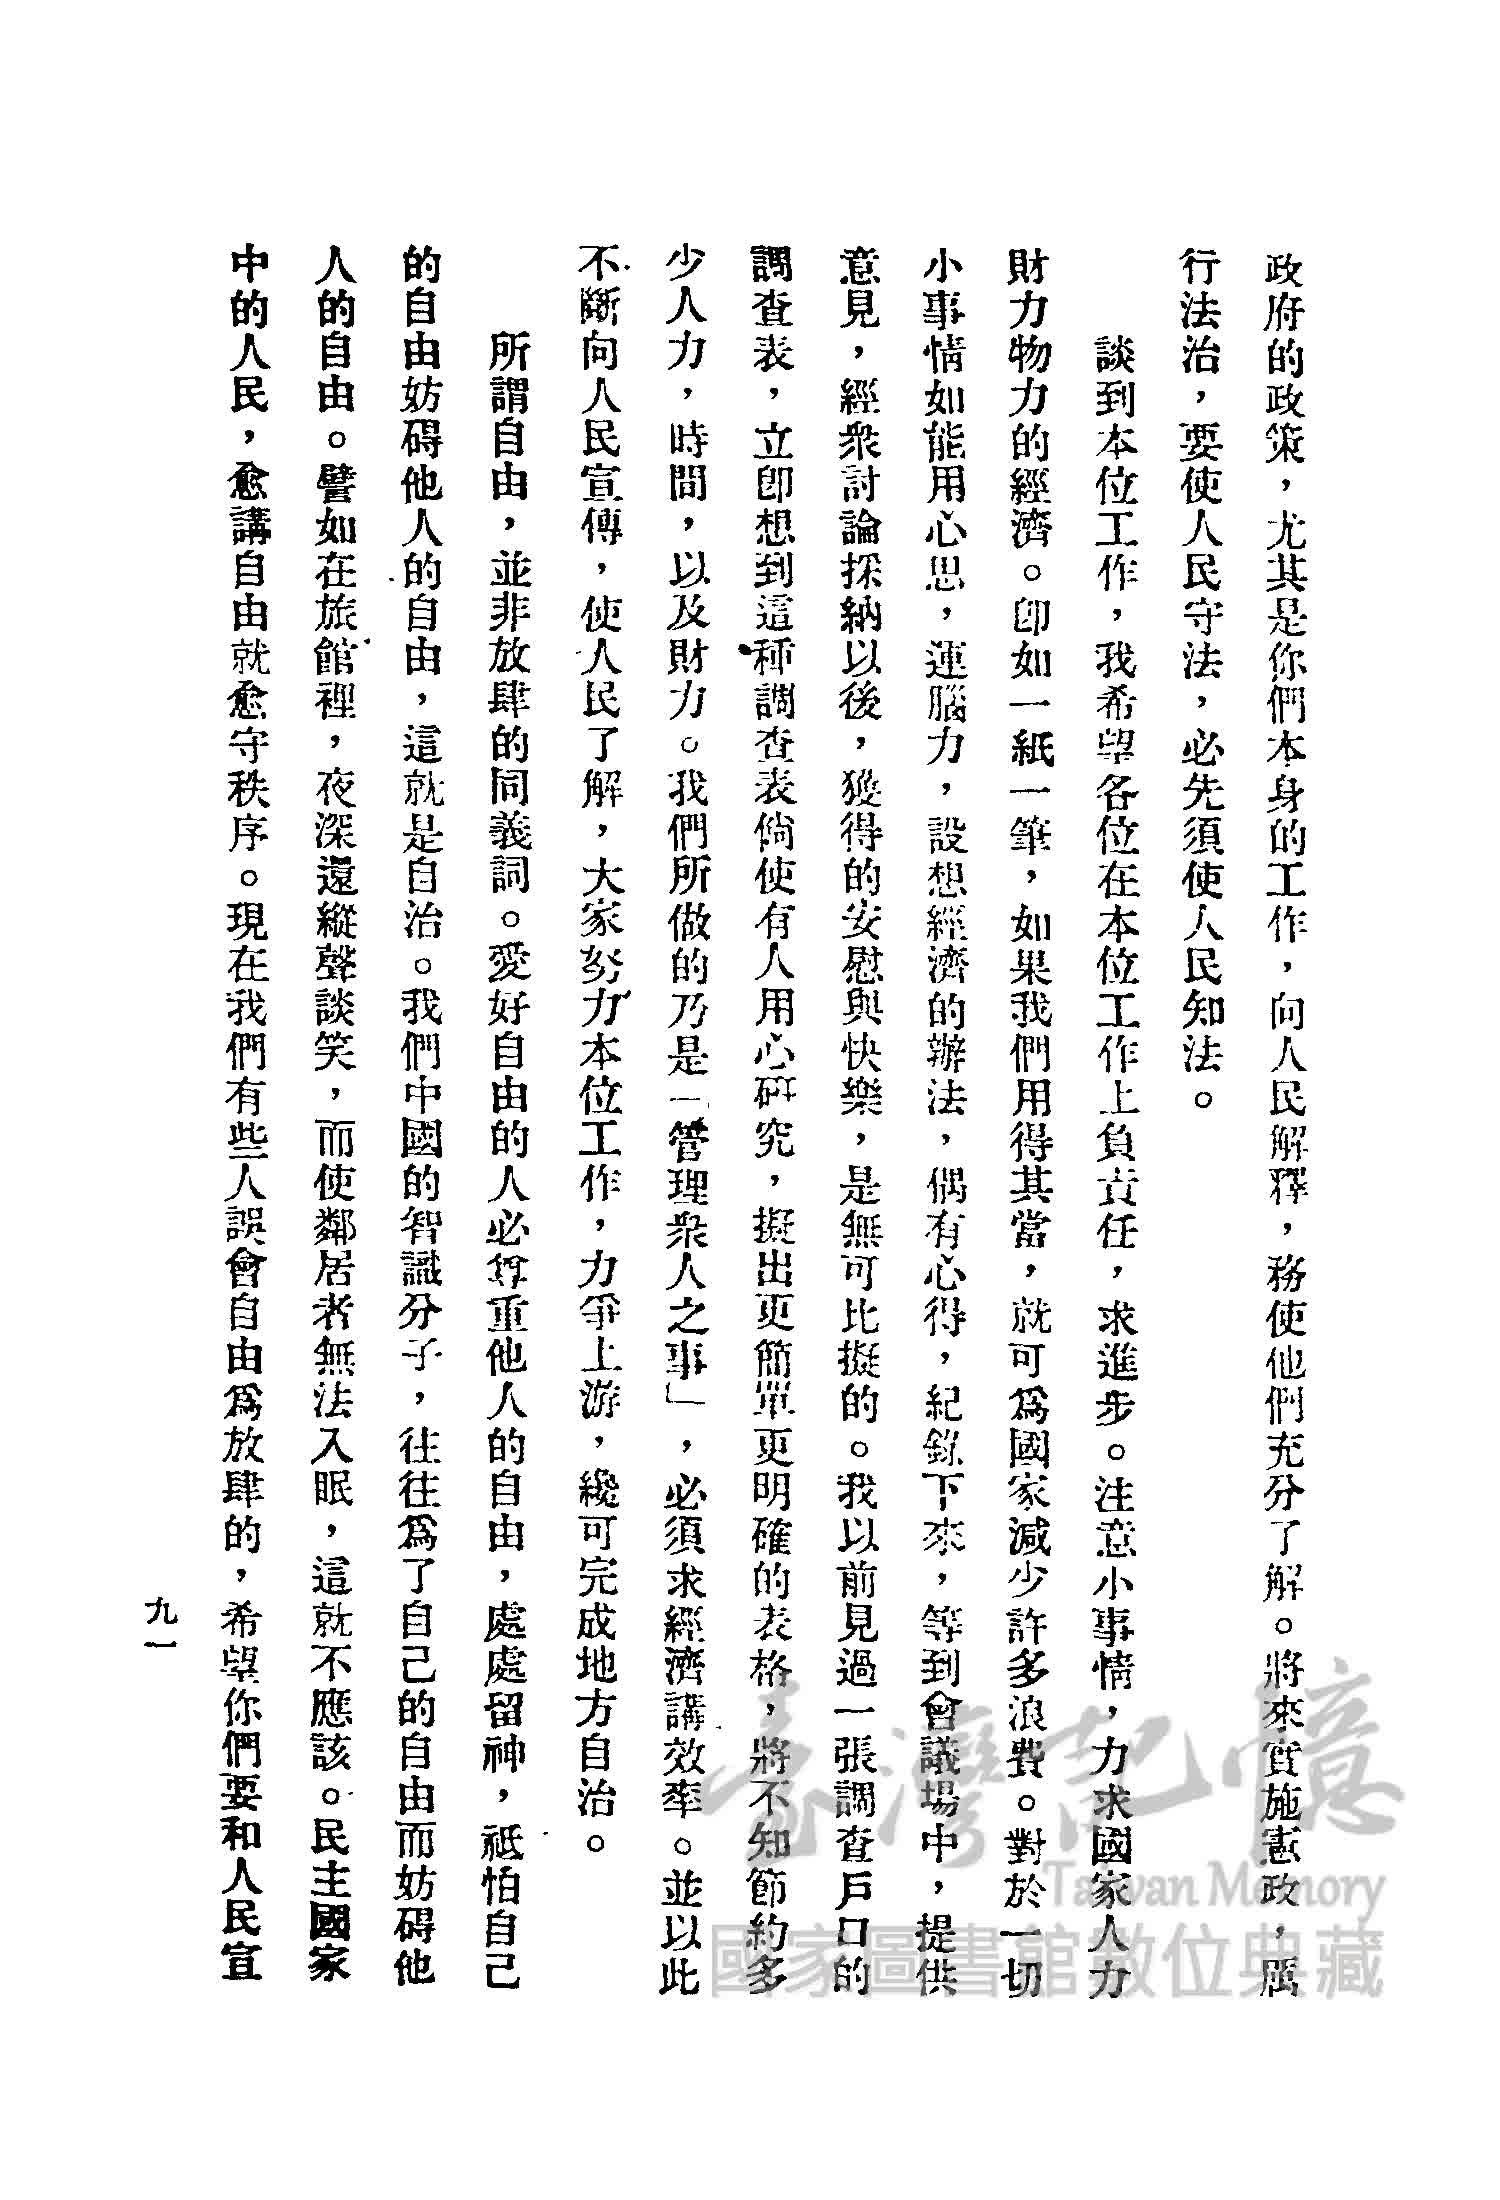 政府的政策，尤其是你們本身的工作，向人民解釋，務使他們充分了解。將來實施憲政，厲
行法治，要使人民守法，必先須使人民知法。
談到本位工作，我希望各位在本位工作上負責任，求進步。注意小事情，力求國家人力
財力物力的經濟。卽如一紙一筆，如果我們用得其當，就可爲國家減少許多浪費。對於一切
小事情如能用心思，運腦力，設想經濟的辦法，偶有心得，紀錄下來，等到會議場中，提供
意見，經衆討論採納以後，獲得的安慰與快樂，是無可比擬的。我以前見過一張調查戶口的
調查表，立卽想到這種調查表倘使有人用心研究，擬出更簡單更明確的表格，將不知節約多
少人力，時間，以及財力。我們所做的乃是「管理衆人之事」，必須求經濟講效率。並以此
不斷向人民宣傳，使人民了解，大家努力本位工作，力爭上游，纔可完成地方自治。
所謂自由，並非放肆的同義詞。愛好自由的人必尊重他人的自由，處處留神，祗怕自己
的自由妨碍他人的自由，這就是自治。我們中國的智識分子，往往爲了自己的自由而妨碍他
人的自由。譬如在旅館裡，夜深還縱聲談笑，而使鄰居者無法入眠，這就不應該。民主國家
中的人民，愈講自由就愈守秩序。現在我們有些人誤會自由爲放肆的，希望你們要和人民宣
九一
臺灣記憶
Taiwan Memory
國家圖書館數位典藏